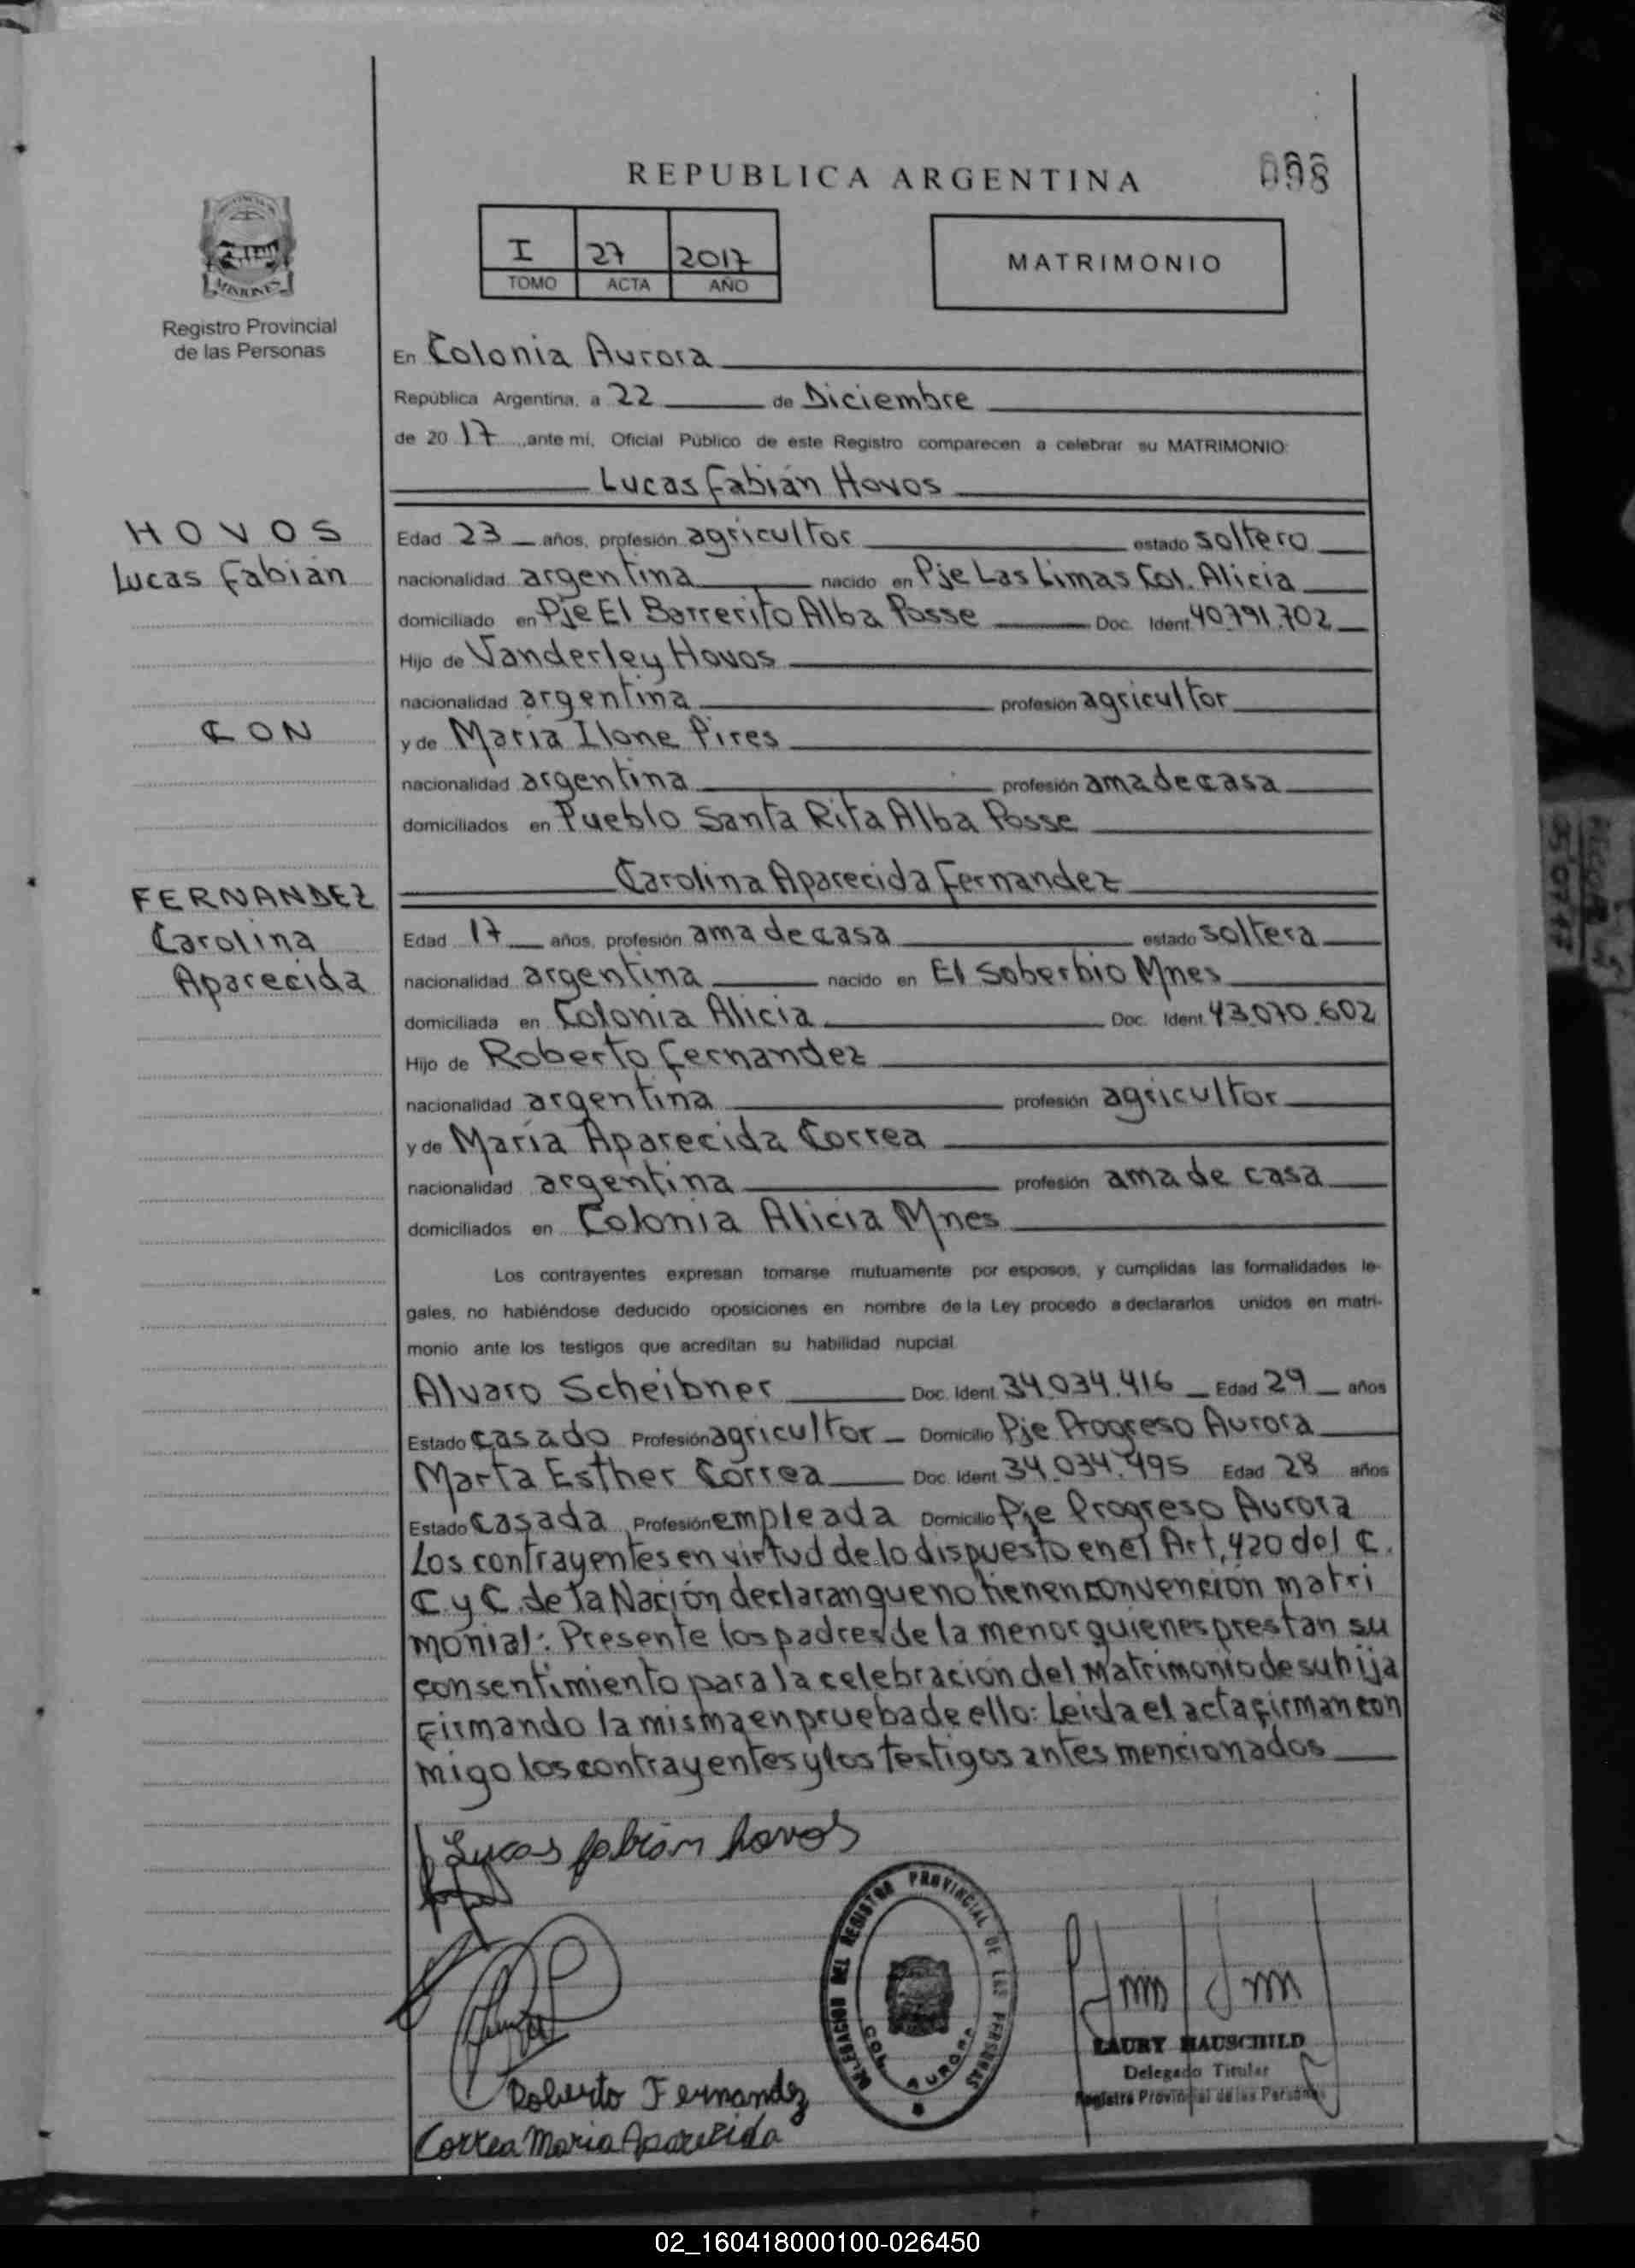 REPUBLICA ARGENTINA
098
MISIONES
Registro Provincial
de las Personas
I 27 2017
TOMO ACTA AÑO
MATRIMONIO
En Colonia Aurora
República Argentina, a 22 de Diciembre
de 20 17 , ante mí, Oficial Público de este Registro comparecen a celebrar su MATRIMONIO:
Lucas Fabián Hovos
HOVOS
Lucas Fabián
CON
FERNANDEZ
Carolina
Aparecida
Edad 23 años, profesión agricultor estado soltero
nacionalidad argentina nacido en Pje Las Limas Col. Alicia
domiciliado en Pje El Barrerito Alba Posse Doc. Ident 40.791.702
Hijo de Vanderley Hovos
nacionalidad argentina profesión agricultor
y de María Ilone Pires
nacionalidad argentina profesión ama de casa
domiciliados en Pueblo Santa Rita Alba Posse
Carolina Aparecida Fernandez
Edad 17 años, profesión ama de casa estado soltera
nacionalidad argentina nacido en El Soberbio Mnes
domiciliada en Colonia Alicia Doc. Ident. 43.070.602
Hijo de Roberto Fernandez
nacionalidad argentina profesión agricultor
y de María Aparecida Correa
nacionalidad argentina profesión ama de casa
domiciliados en Colonia Alicia Mnes
Los contrayentes expresan tomarse mutuamente por esposos, y cumplidas las formalidades le-
gales, no habiéndose deducido oposiciones en nombre de la Ley procedo a declararlos unidos en matri-
monio ante los testigos que acreditan su habilidad nupcial.
Alvaro Scheibner Doc. Ident. 34.034.416 Edad 29 años
Estado casado Profesión agricultor Domicilio Pje Progreso Aurora
Marta Esther Correa Doc. Ident. 34.034.495 Edad 28 años
Estado casada Profesión empleada Domicilio Pje Progreso Aurora
Los contrayentes en virtud de lo dispuesto en el Art, 420 del C.
C y C. de la Nación declaran que no tienen convención matri
monial: Presente los padres de la menor quienes prestan su
consentimiento para la celebración del Matrimonio de su hija
firmando la misma en prueba de ello: Leida el acta firman con
migo los contrayentes y los testigos antes mencionados
Lucas fabian hovos
DELEGACION DEL REGISTRO PROVINCIAL DE LAS PERSONAS
COL. AURORA
LAURY HAUSCHILD
Delegado Titular
Registro Provincial de las Personas
Roberto Fernandez
Correa Maria Aparecida
02_160418000100-026450